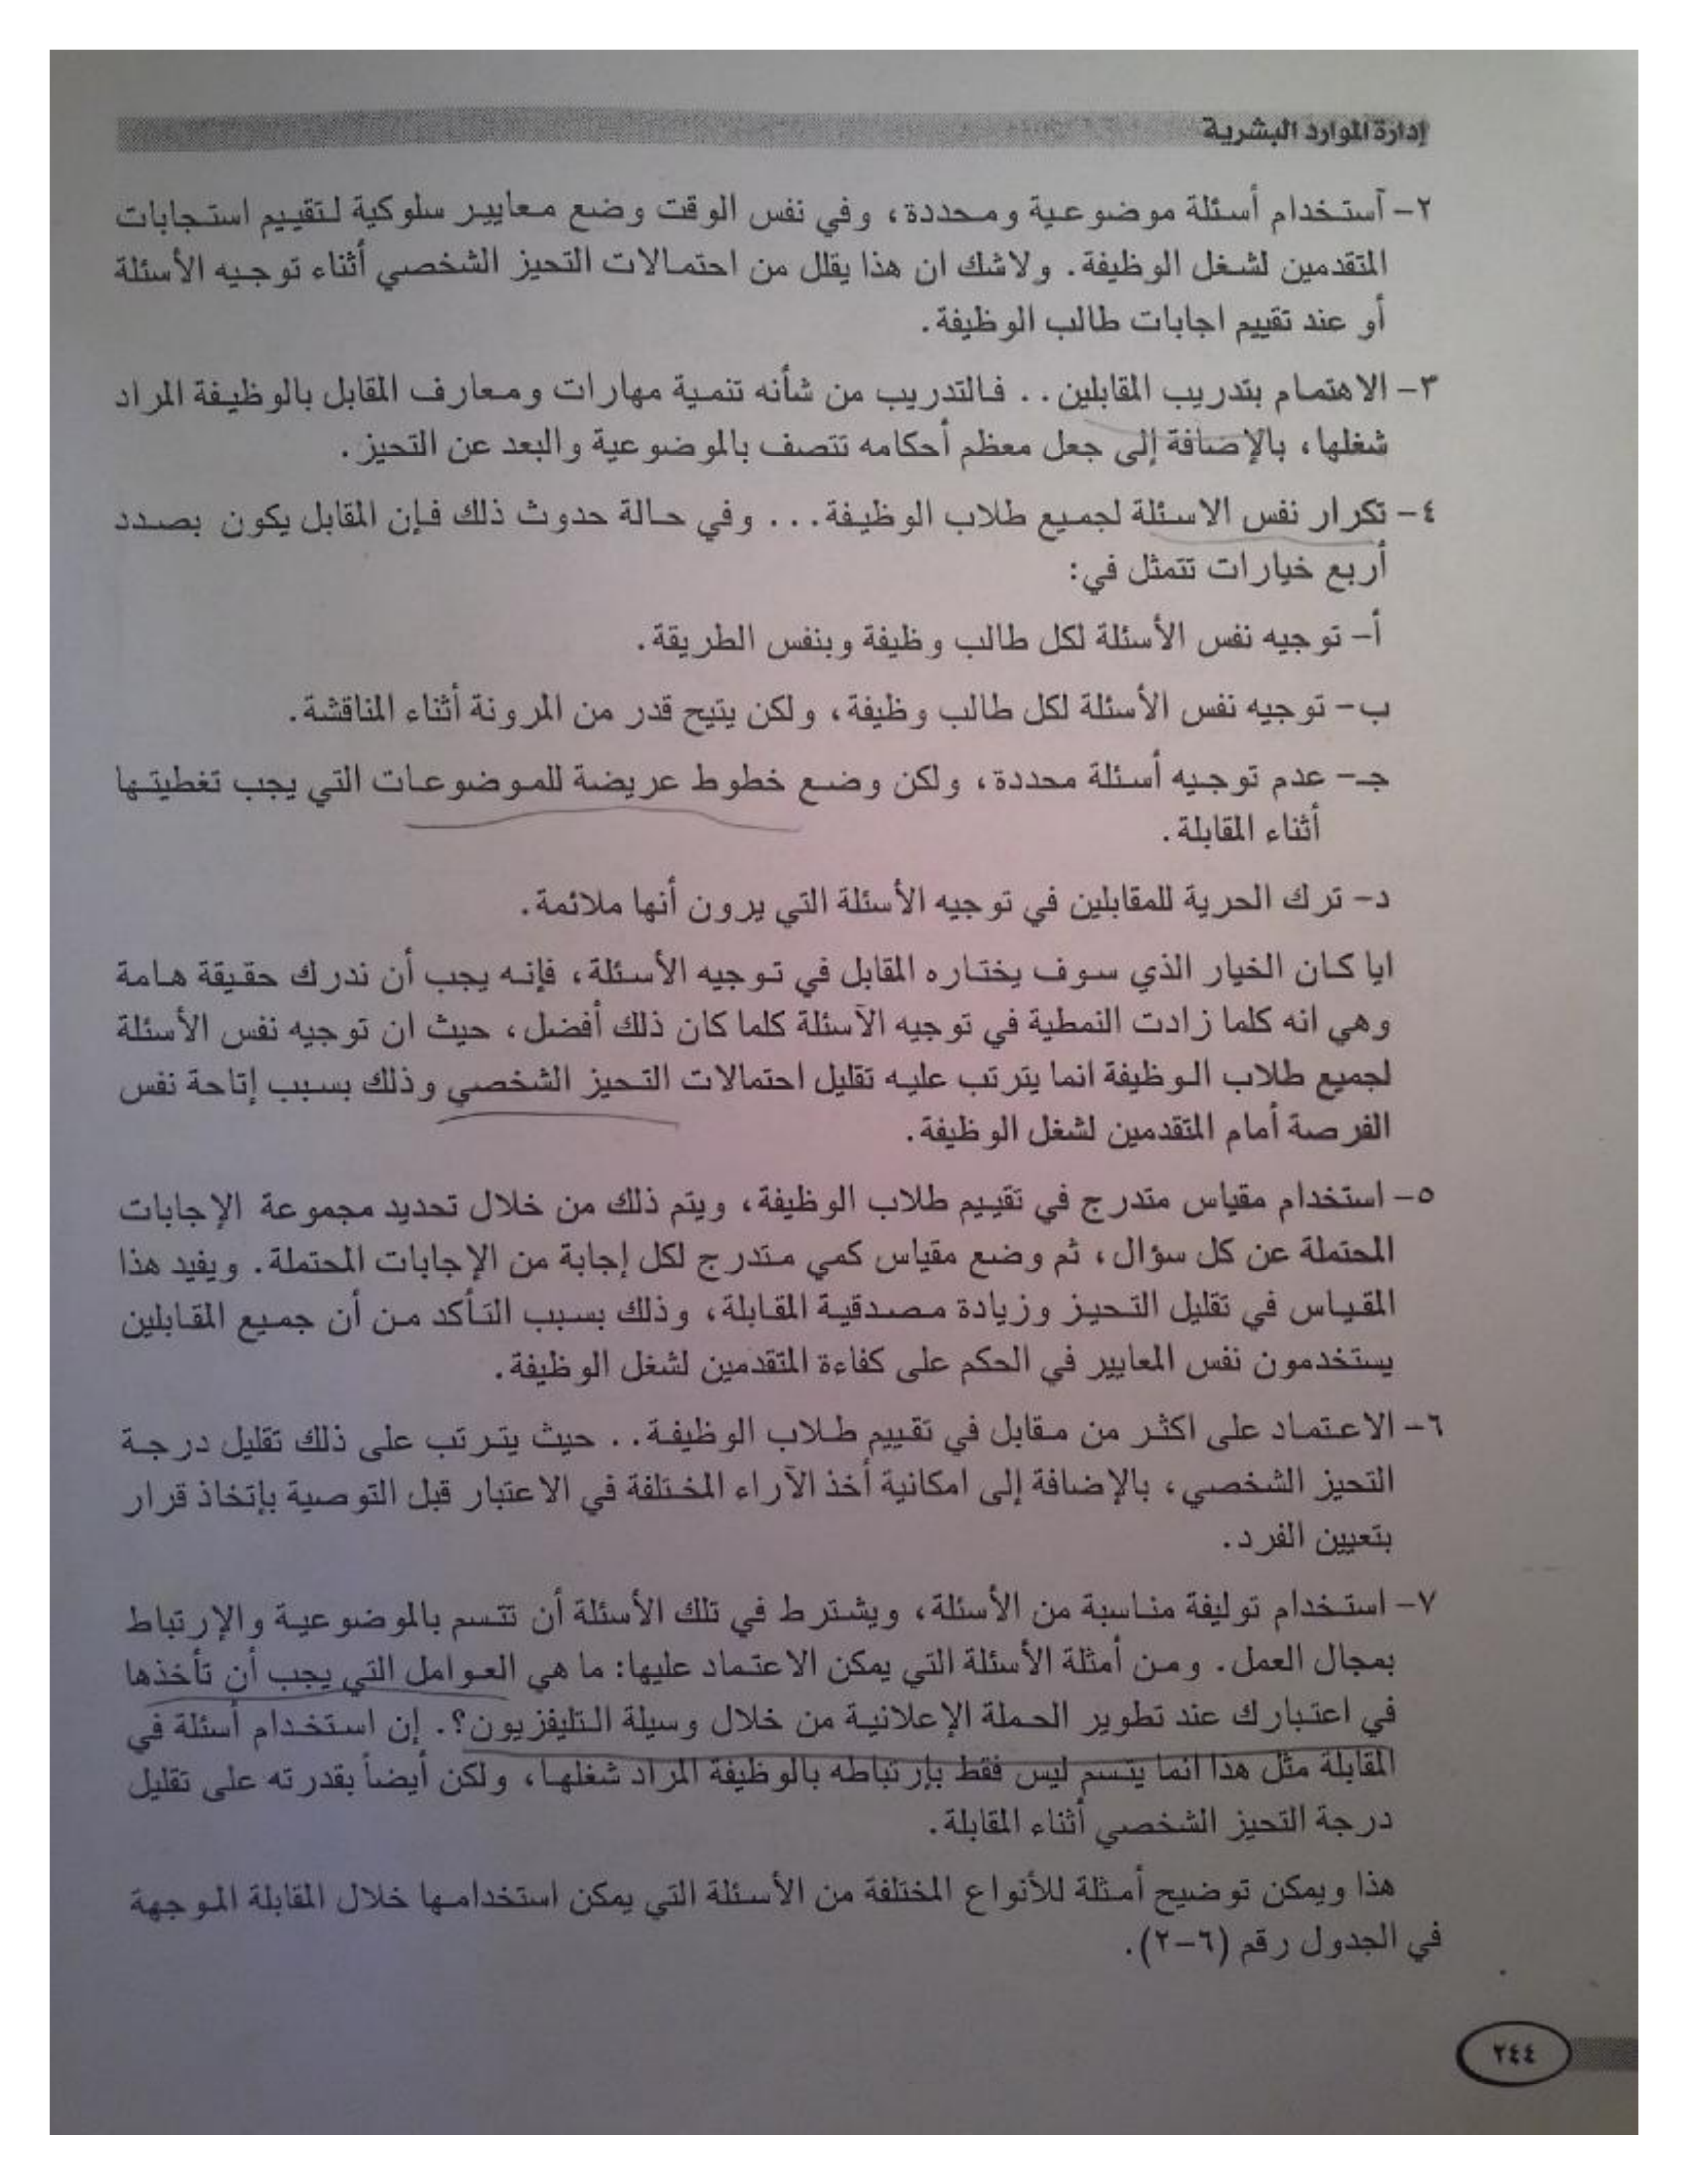 إدارة الموارد البشرية
٢- آستخدام أسئلة موضوعية ومحددة، وفي نفس الوقت وضع معايير سلوكية لتقييم استجابات
المتقدمين لشغل الوظيفة. ولاشك ان هذا يقلل من احتمالات التحيز الشخصي أثناء توجيه الأسئلة
أو عند تقييم اجابات طالب الوظيفة.
٣- الاهتمام بتدريب المقابلين.. فالتدريب من شأنه تنمية مهارات ومعارف المقابل بالوظيفة المراد
شغلها، بالإضافة إلى جعل معظم أحكامه تتصف بالموضوعية والبعد عن التحيز.
٤- تكرار نفس الاسئلة لجميع طلاب الوظيفة... وفي حالة حدوث ذلك فإن المقابل يكون بصدد
أربع خيارات تتمثل في:
أ- توجيه نفس الأسئلة لكل طالب وظيفة وبنفس الطريقة.
ب- توجيه نفس الأسئلة لكل طالب وظيفة، ولكن يتيح قدر من المرونة أثناء المناقشة.
جـ- عدم توجيه أسئلة محددة، ولكن وضع خطوط عريضة للموضوعات التي يجب تغطيتها
أثناء المقابلة.
د- ترك الحرية للمقابلين في توجيه الأسئلة التي يرون أنها ملائمة.
ايا كان الخيار الذي سوف يختاره المقابل في توجيه الأسئلة، فإنه يجب أن ندرك حقيقة هامة
وهي انه كلما زادت النمطية في توجيه الآسئلة كلما كان ذلك أفضل، حيث ان توجيه نفس الأسئلة
لجميع طلاب الوظيفة انما يترتب عليه تقليل احتمالات التحيز الشخصي وذلك بسبب إتاحة نفس
الفرصة أمام المتقدمين لشغل الوظيفة.
٥- استخدام مقياس متدرج في تقييم طلاب الوظيفة، ويتم ذلك من خلال تحديد مجموعة الإجابات
المحتملة عن كل سؤال، ثم وضع مقياس كمي متدرج لكل إجابة من الإجابات المحتملة. ويفيد هذا
المقياس في تقليل التحيز وزيادة مصدقية المقابلة، وذلك بسبب التأكد من أن جميع المقابلين
يستخدمون نفس المعايير في الحكم على كفاءة المتقدمين لشغل الوظيفة.
٦- الاعتماد على اكثر من مقابل في تقييم طلاب الوظيفة.. حيث يترتب على ذلك تقليل درجة
التحيز الشخصي، بالإضافة إلى امكانية أخذ الآراء المختلفة في الاعتبار قبل التوصية بإتخاذ قرار
بتعيين الفرد.
٧- استخدام توليفة مناسبة من الأسئلة، ويشترط في تلك الأسئلة أن تتسم بالموضوعية والإرتباط
بمجال العمل. ومن أمثلة الأسئلة التي يمكن الاعتماد عليها: ما هي العوامل التي يجب أن تأخذها
في اعتبارك عند تطوير الحملة الإعلانية من خلال وسيلة التليفزيون؟. إن استخدام أسئلة في
المقابلة مثل هذا انما يتسم ليس فقط بإرتباطه بالوظيفة المراد شغلها، ولكن أيضاً بقدرته على تقليل
درجة التحيز الشخصي أثناء المقابلة.
هذا ويمكن توضيح أمثلة للأنواع المختلفة من الأسئلة التي يمكن استخدامها خلال المقابلة الموجهة
في الجدول رقم (٦-٢).
٢٤٤